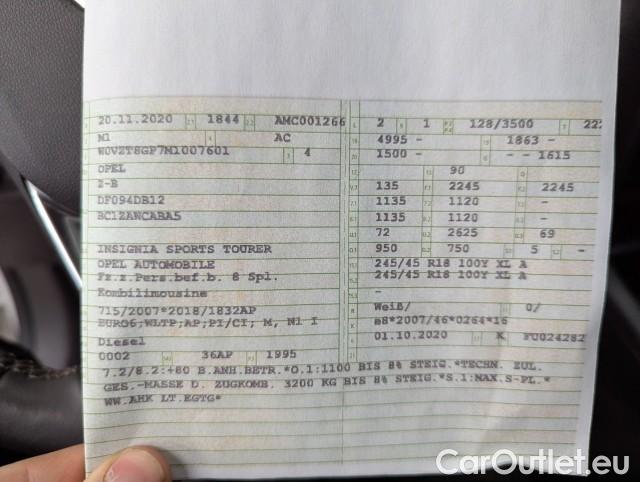 20.11.2020 1844 AMC001266
M1 AC
W0VZT8GP7M1007601 4
OPEL
Z-B
DF094DB12
BC1ZANCABA5
INSIGNIA SPORTS TOURER
OPEL AUTOMOBILE
Fz.z.Pers.bef.b. 8 Spl.
Kombilimousine
715/2007*2018/1832AP
EURO6;WLTP;AP;PI/CI; M, N1 I
Diesel
0002 36AP 1995
2 1 128/3500
4995 - 1863 -
1500 - - - 1615
90
135 2245 2245
1135 1120 -
1135 1120 -
72 2625 69
950 750 5 -
245/45 R18 100Y XL A
245/45 R18 100Y XL A
-
Weiß/ 0/
e8*2007/46*0264*16
01.10.2020 K FU024282
7.2/8.2:+80 B.ANH.BETR.*O.1:1100 BIS 8% STEIG.*TECHN. ZUL.
GES.-MASSE D. ZUGKOMB. 3200 KG BIS 8% STEIG.*S.1:MAX.S-PL.*
WW.AHK LT.EGTG*
CarOutlet.eu